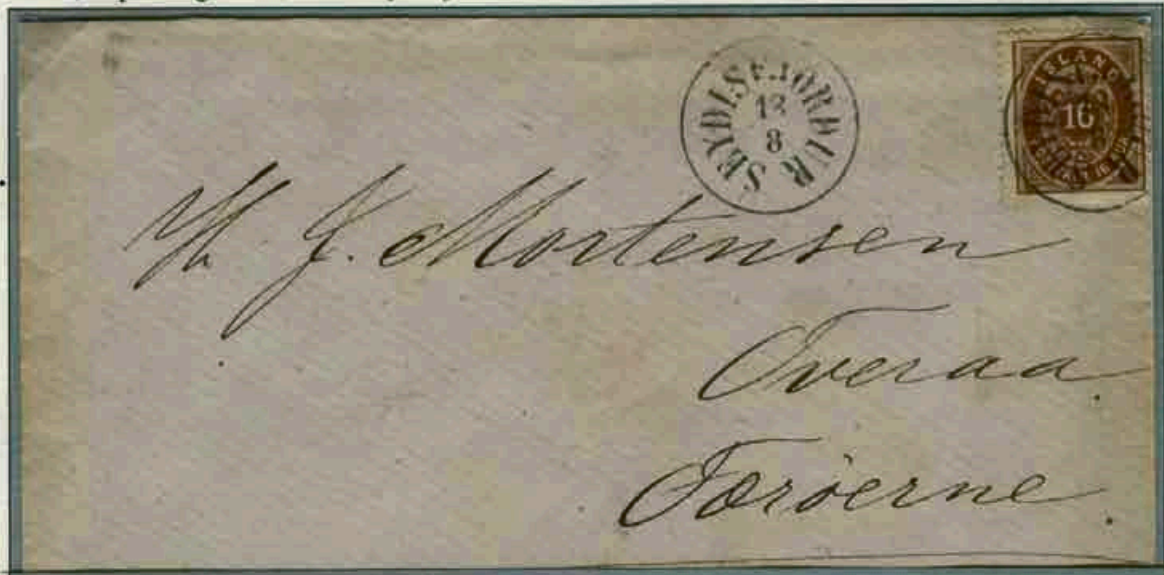 SEYDISFJORDUR
12
8
ISLAND
16
J. Mortensen
Tveraa.
Færöerne.